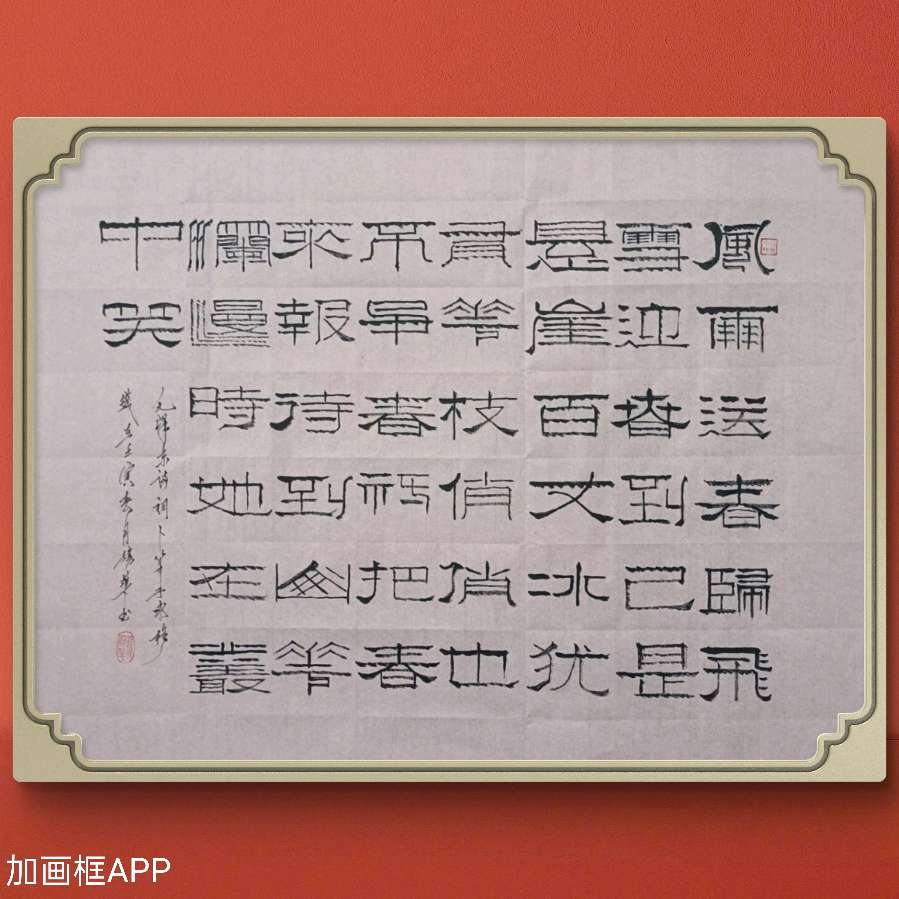 風雨送春歸飛
雪迎春到已是
悬崖百丈冰猶
有花枝俏俏也
不爭春祇把春
來報待到山花
爛漫時她在叢
中笑
毛澤東詩詞卜算子咏梅
歲在壬寅春月書
加画框APP